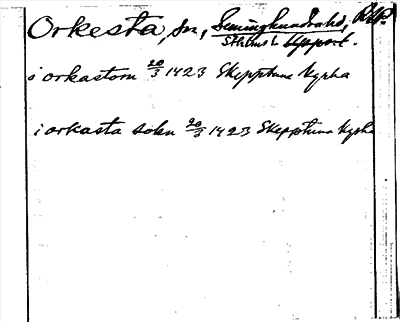 Orkesta, sn, Seminghundrahd, RAP.
Sthlms l. Upport.
i orkastom 20/3 1423 Skepptuna Kyrka
i orkasta sokn 20/3 1423 Skepptuna Kyrka